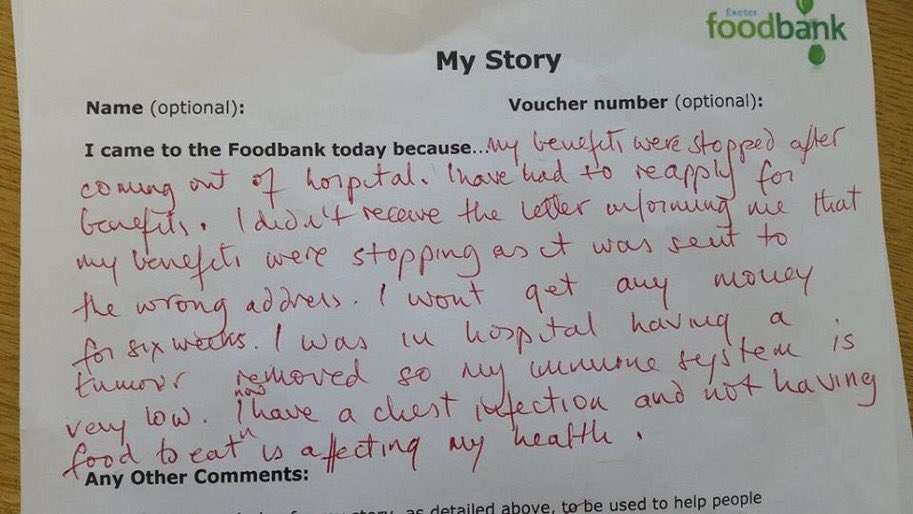 Exeter
foodbank
My Story
Name (optional): Voucher number (optional):
I came to the Foodbank today because...My benefits were stopped after
coming out of hospital. I have had to reapply for
benefits. I didn't receive the letter informing me that
my benefits were stopping as it was sent to
the wrong address. I wont get any money
for six weeks. I was in hospital having a
tumour removed so my immune system is
very low. I now have a chest infection and not having
food to eat is affecting my health.
Any Other Comments:
story, as detailed above, to be used to help people